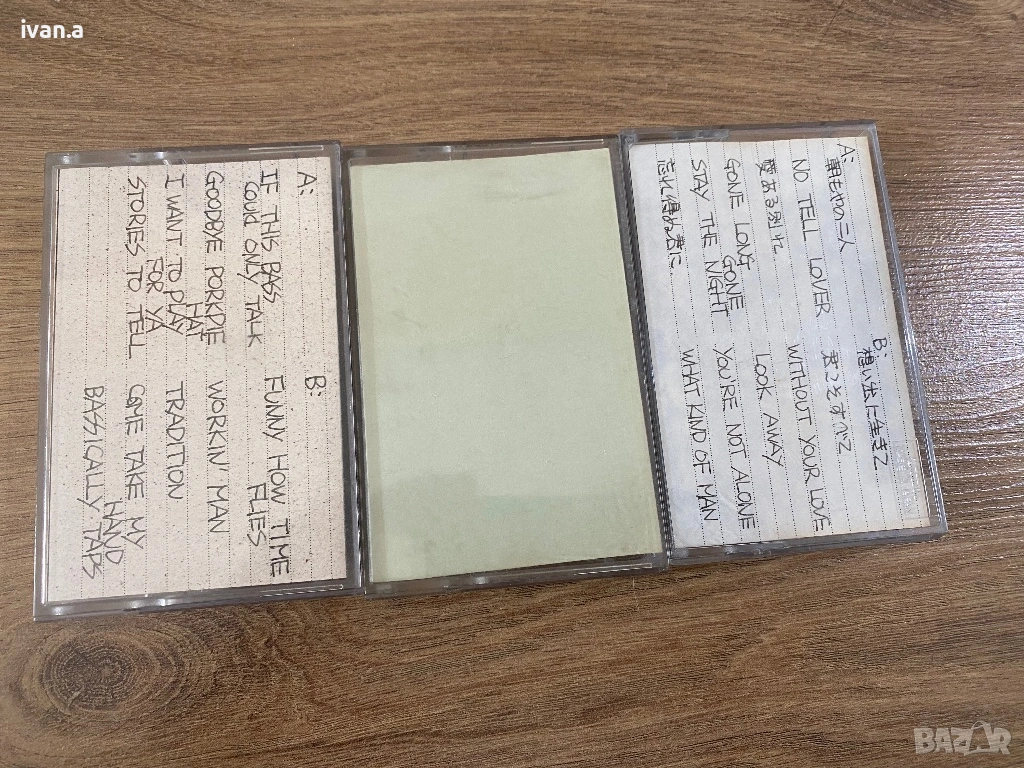 ivan.a
A:
IF THIS BASS
COULD ONLY TALK
GOODBYE PORKPIE
HAT
I WANT TO PLAY
FOR YA
STORIES TO TELL
B:
FUNNY HOW TIME
FLIES
WORKIN' MAN
TRADITION
COME TAKE MY
HAND
BASSICALLY TAPS
A:
朝もやの二人
NO TELL LOVER
愛ある別れ
GONE LONG
GONE
STAY THE NIGHT
忘れ得ぬ君に
B:
想い出に生きて
君こそすべて
WITHOUT YOUR LOVE
LOOK AWAY
YOU'RE NOT ALONE
WHAT KIND OF MAN
BAZAR